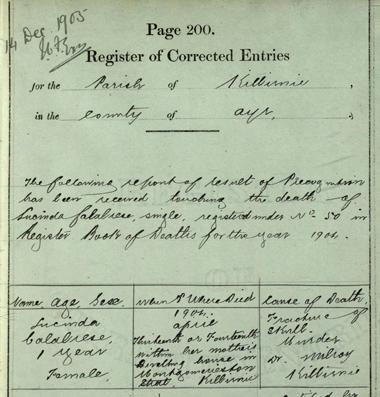 14 Dec. 1905
Page 200.
Register of Corrected Entries
for the Parish of Kilbirnie,
in the County of Ayr.
The following report of result of Precognition
has been received touching the death of
Lucinda Calabrese, single, registered under No 50 in
Register Book of Deaths for the year 1904.
Name Age, Sex When & Where Died Cause of Death,
Lucinda
Calabrese,
1 year
Female,
1904,
April
Thirteenth or Fourteenth
within her mother's
Dwelling house in
Montgomerieston
Street Kilbirnie
Fracture of
Skull.
Murder
Dr. Milroy
Kilbirnie